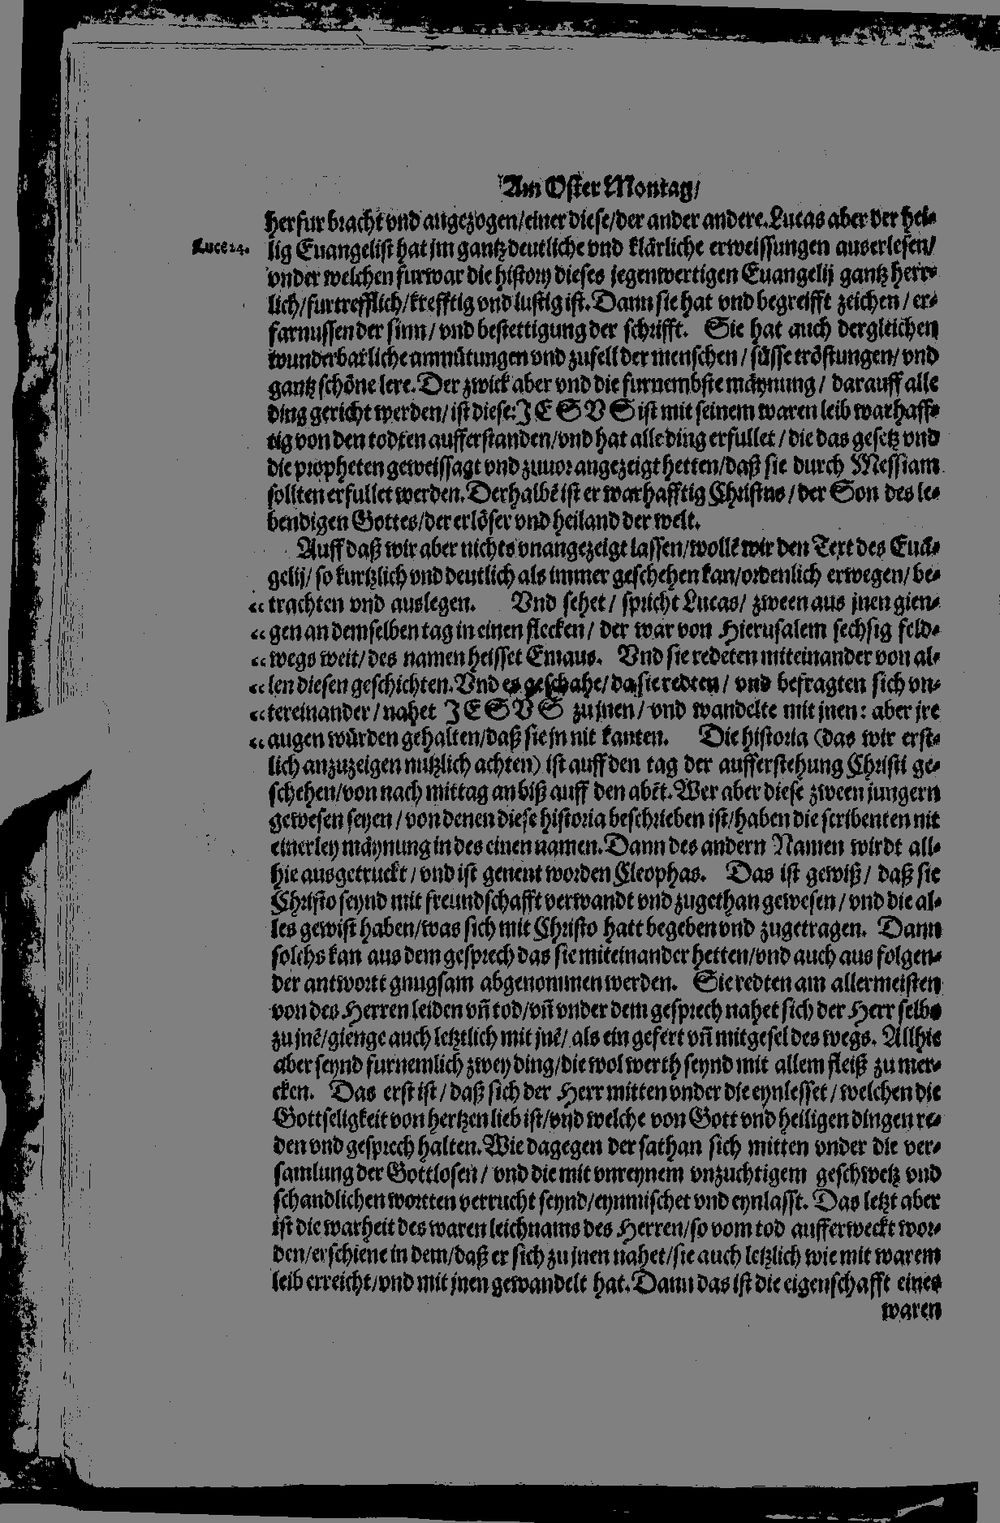 Am Oster Montag/
herfur bracht vnd angezogen/einer diese/der ander andere. Lucas aber der hei-
Luce 24.
lig Euangelist hat jm gantz deutliche vnd klärliche erweissungen auserlesen/
vnder welchen furwar die histori dieses jegenwertigen Euangelij gantz herr-
lich/furtrefflich/krefftig vnd lustig ist. Dann sie hat vnd begreifft zeichen/er-
farnussen der sinn/vnd bestettigung der schrifft. Sie hat auch dergleichen
wunderbarliche anmütungen vnd zufell der menschen/süsse tröstungen/vnd
gantz schöne lere. Der zwick aber vnd die furnembste mäynung/darauff alle
ding gericht werden/ist diese: JESVS ist mit seinem waren leib warhaff-
tig von den todten aufferstanden/vnd hat alle ding erfullet/die das gesetz vnd
die propheten geweissagt vnd zuuor angezeigt hetten/daß sie durch Messiam
sollten erfullet werden. Derhalbē ist er warhafftig Christus/der Son des le-
bendigen Gottes/der erlöser vnd heiland der welt.
Auff daß wir aber nichts vnangezeigt lassen/wollē wir den Text des Euā-
gelij/so kurtzlich vnd deutlich als immer geschehen kan/ordenlich erwegen/be-
„ trachten vnd auslegen. Vnd sehet/spricht Lucas/zween aus jnen gien-
„ gen an demselben tag in einen flecken/der war von Hierusalem sechsig feld-
„ wegs weit/des namen heisset Emaus. Vnd sie redeten miteinander von al-
„ len diesen geschichten. Vnd es geschahe/da sie redten/vnd befragten sich vn-
„ tereinander/nahet JESVS zu jnen/vnd wandelte mit jnen: aber jre
„ augen würden gehalten/daß sie jn nit kanten. Die historia (das wir erst-
lich anzuzeigen nutzlich achten) ist auff den tag der aufferstehung Christi ge-
schehen/von nach mittag an biß auff den abēt. Wer aber diese zween jungern
gewesen seyen/von denen diese historia beschrieben ist/haben die scribenten nit
einerley mäynung in des einen namen. Dann des andern Namen wirdt all-
hie ausgetruckt/vnd ist genent worden Cleophas. Das ist gewiß/daß sie
Christo seynd mit freundschafft verwandt vnd zugethan gewesen/vnd die al-
les gewist haben/was sich mit Christo hatt begeben vnd zugetragen. Dann
solchs kan aus dem gesprech das sie miteinander hetten/vnd auch aus folgen-
der antwortt gnugsam abgenommen werden. Sie redten am allermeisten
von des Herren leiden vñ tod/vñ vnder dem gesprech nahet sich der Herr selbs
zu jnē/gienge auch letztlich mit jnē/als ein gefert vñ mitgesel des wegs. Allhie
aber seynd furnemlich zwey ding/die wol werth seynd mit allem fleiß zu mer-
cken. Das erst ist/daß sich der Herr mitten vnder die eynlesset/welchen die
Gottseligkeit von hertzen lieb ist/vnd welche von Gott vnd heiligen dingen re-
den vnd gesprech halten. Wie dagegen der sathan sich mitten vnder die ver-
samlung der Gottlosen/vnd die mit vnreynem vnzuchtigem geschwetz vnd
schandlichen wortten verrucht seynd/eynmischet vnd eynlasst. Das letzt aber
ist die warheit des waren leichnams des Herren/so vom tod aufferweckt wor-
den/erschiene in dem/daß er sich zu jnen nahet/sie auch letzlich wie mit warem
leib erreicht/vnd mit jnen gewandelt hat. Dann das ist die eigenschafft eines
waren